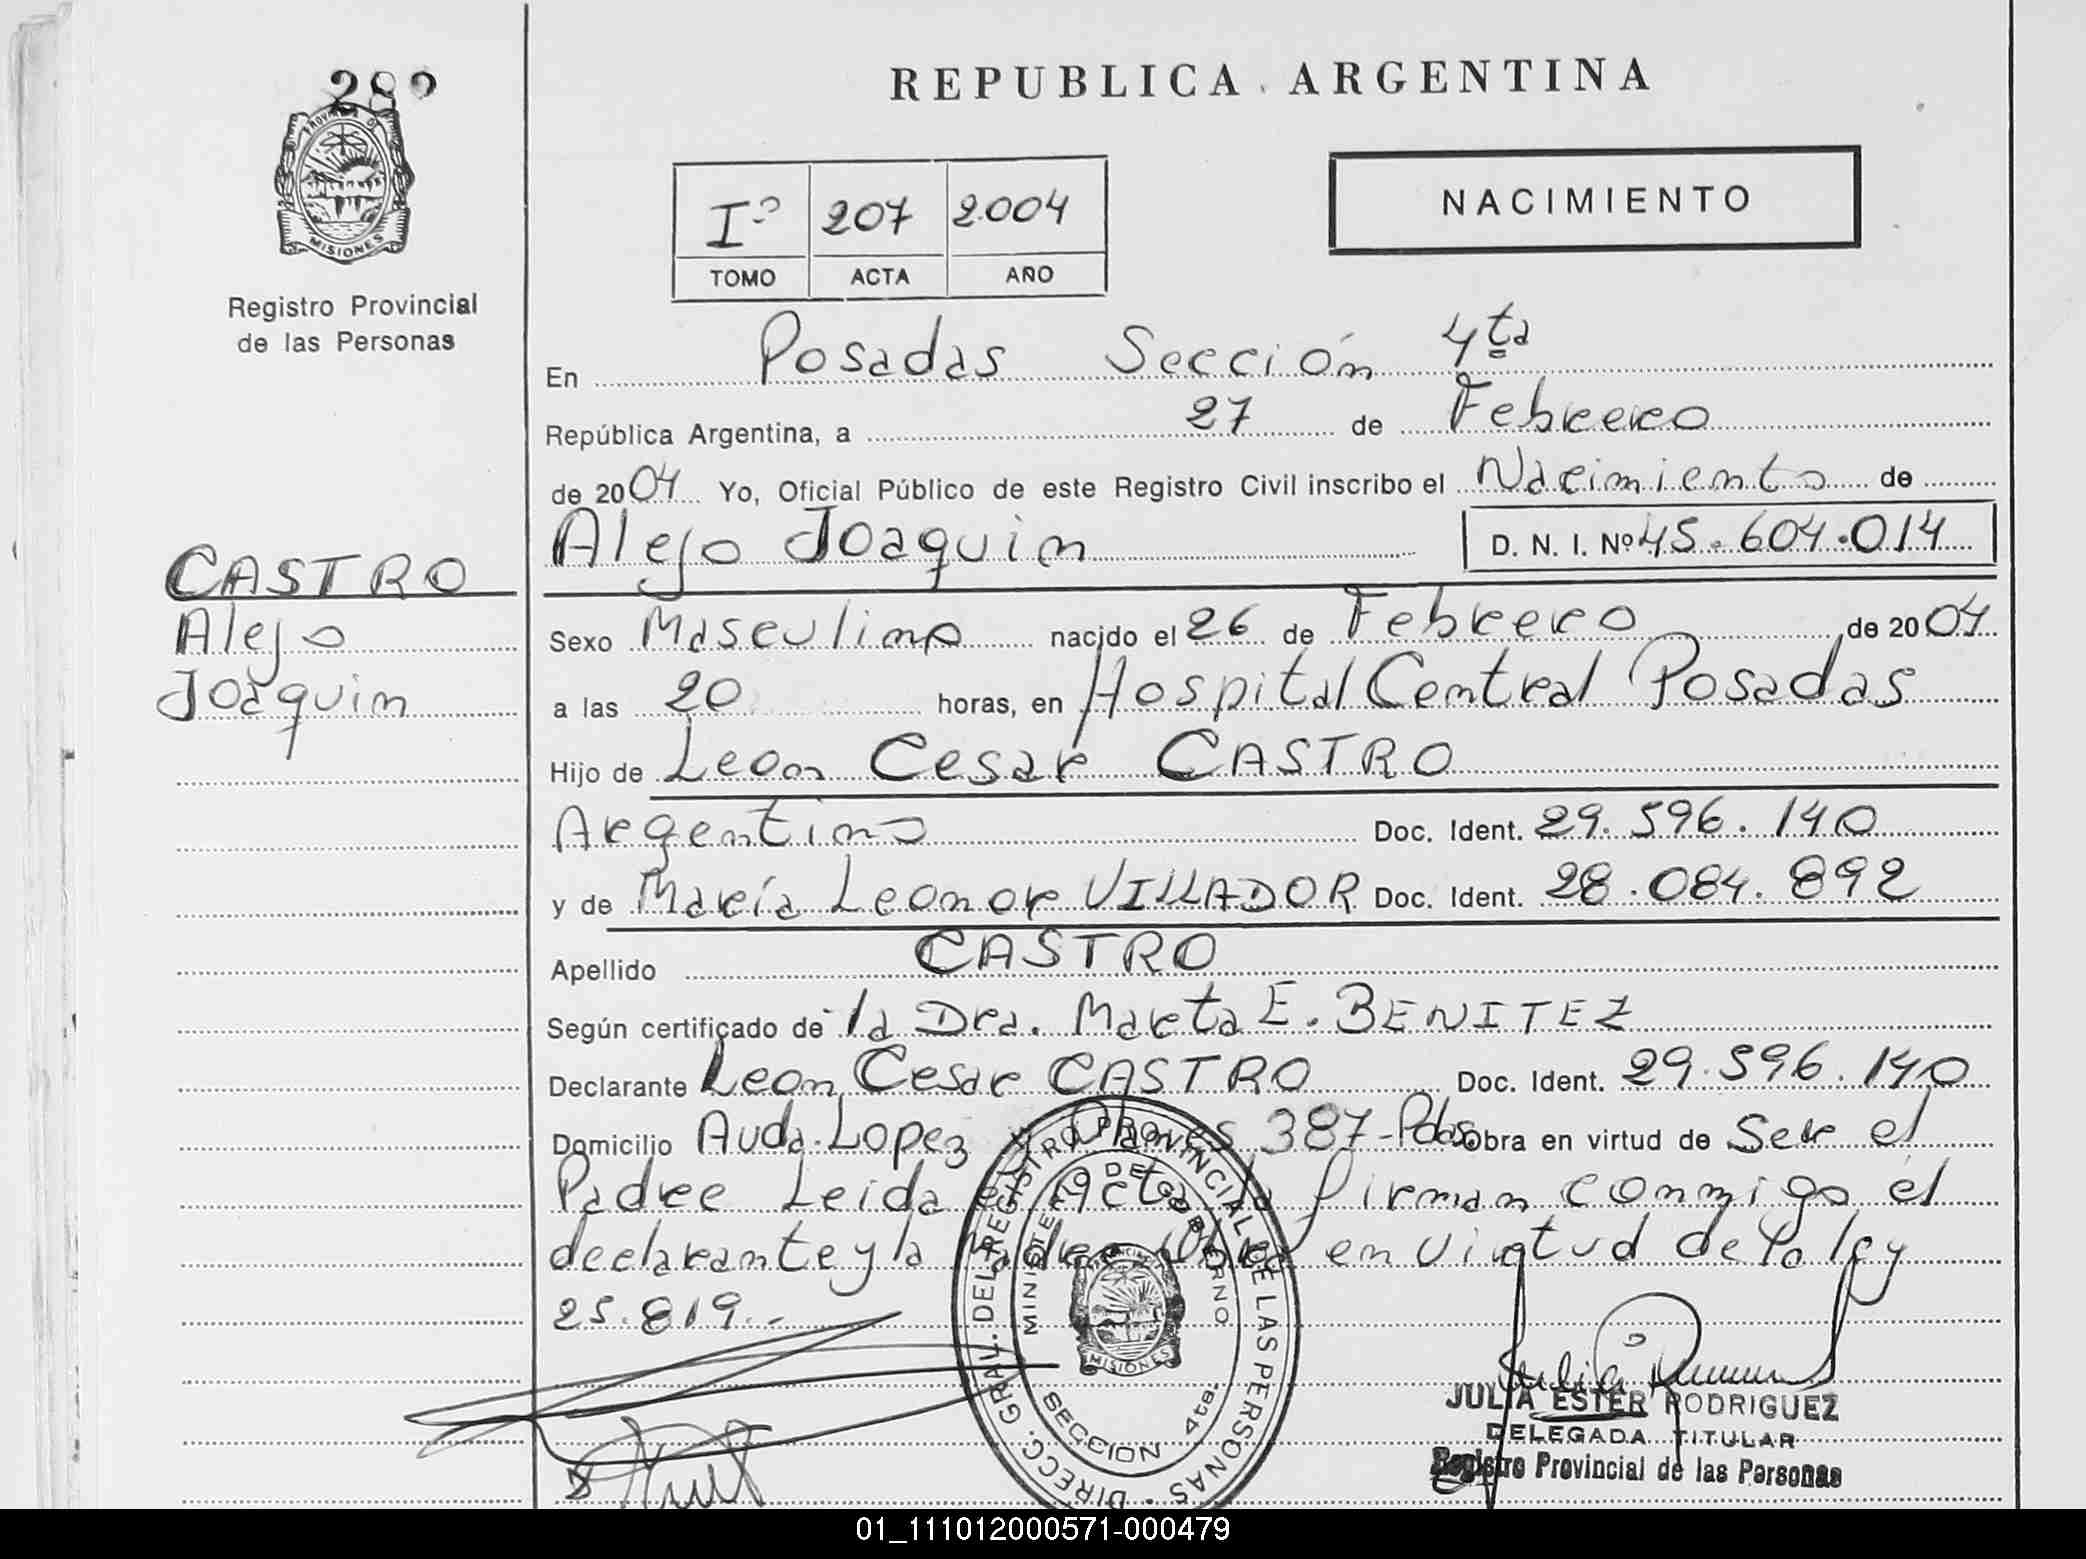 REPUBLICA ARGENTINA
PROVINCIA DE
MISIONES
Registro Provincial
de las Personas
NACIMIENTO
Iº 207 2.004
TOMO ACTA AÑO
En Posadas Sección 4ta
República Argentina, a 27 de Febrero
de 2004 Yo, Oficial Público de este Registro Civil inscribo el Nacimiento de
Alejo Joaquin D. N. I. Nº 45.604.014
CASTRO
Alejo
Joaquin
Sexo Masculino nacido el 26 de Febrero de 2004
a las 20 horas, en Hospital Central Posadas
Hijo de Leon Cesar CASTRO
Argentino Doc. Ident. 29.596.140
y de María Leonor VILLADOR Doc. Ident. 28.084.892
Apellido CASTRO
Según certificado de la Dra. Marta E. BENITEZ
Declarante Leon Cesar CASTRO Doc. Ident. 29.596.140
Domicilio Avda. Lopez y Planes 387-Pdas obra en virtud de Ser el
Padre Leida el acta la firman conmigo el
declarante y la madre Obra en virtud de la ley
25.819.-
DIRECC. GRAL. DEL REGISTRO PROVINCIAL DE LAS PERSONAS
MINISTERIO DE GOBIERNO
MISIONES
SECCION 4ta.
JULIA ESTER RODRIGUEZ
DELEGADA TITULAR
Registro Provincial de las Personas
01_111012000571-000479